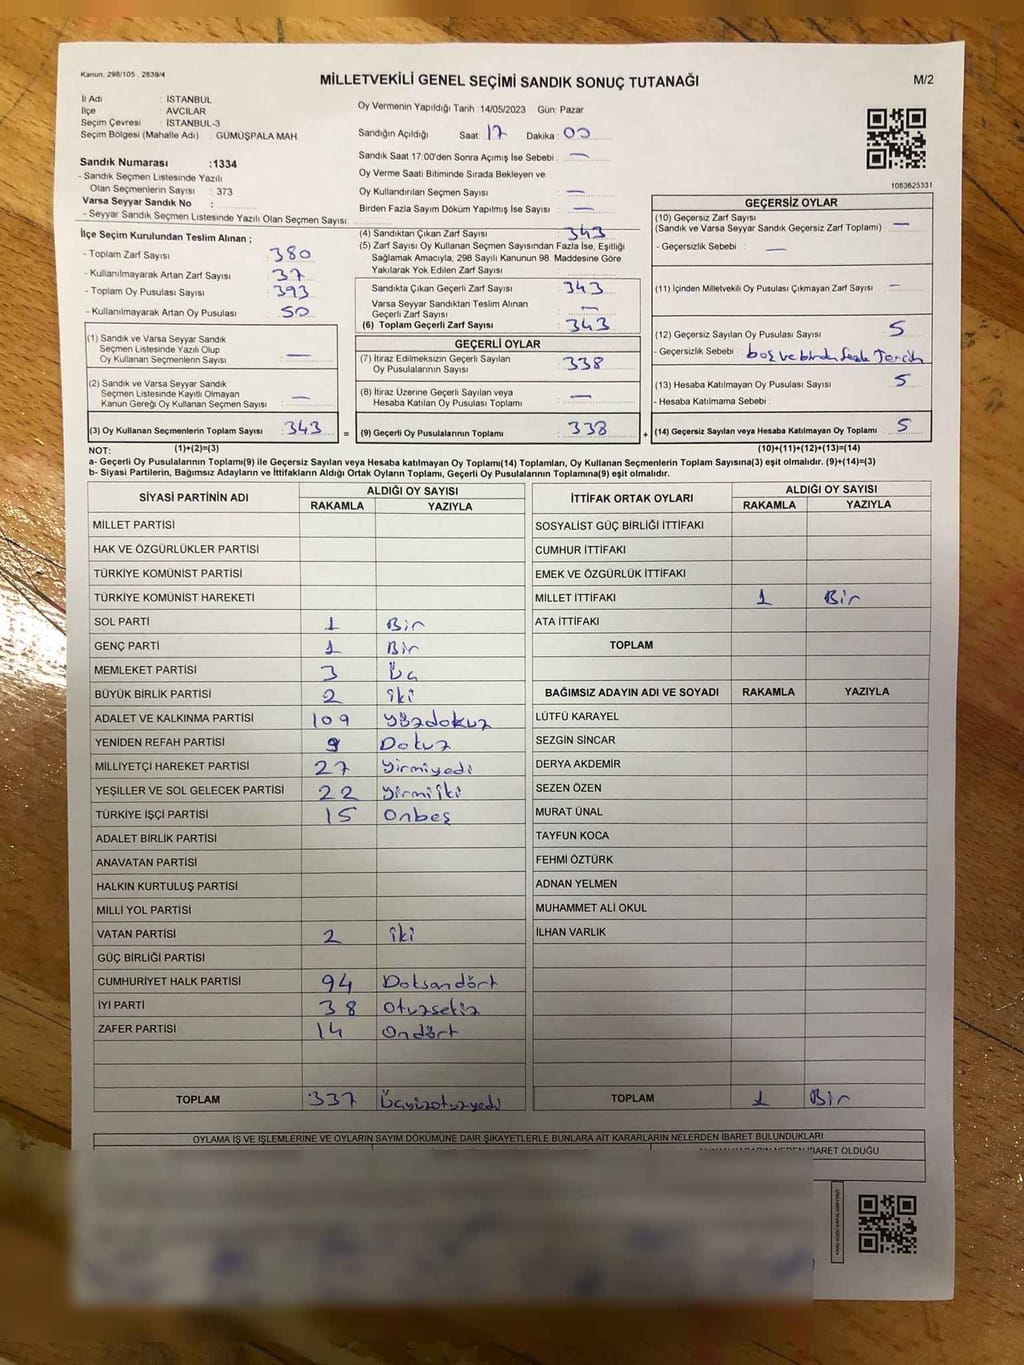 Kanun, 298/105 , 2839/4
MİLLETVEKİLİ GENEL SEÇİMİ SANDIK SONUÇ TUTANAĞI
M/2
İl Adı : İSTANBUL
İlçe : AVCILAR
Seçim Çevresi : İSTANBUL-3
Seçim Bölgesi (Mahalle Adı) : GÜMÜŞPALA MAH.
Sandık Numarası :1334
- Sandık Seçmen Listesinde Yazılı
Olan Seçmenlerin Sayısı : 373
Varsa Seyyar Sandık No :
- Seyyar Sandık Seçmen Listesinde Yazılı Olan Seçmen Sayısı:
Oy Vermenin Yapıldığı Tarih :14/05/2023 Gün: Pazar
Sandığın Açıldığı Saat: 17 Dakika: 00
Sandık Saat 17:00'den Sonra Açımış İse Sebebi : —
Oy Verme Saati Bitiminde Sırada Bekleyen ve
Oy Kullandırılan Seçmen Sayısı : —
Birden Fazla Sayım Döküm Yapılmış İse Sayısı : —
1083625331
İlçe Seçim Kurulundan Teslim Alınan ;
- Toplam Zarf Sayısı : 380
- Kullanılmayarak Artan Zarf Sayısı : 37
- Toplam Oy Pusulası Sayısı : 393
- Kullanılmayarak Artan Oy Pusulası : 50
(1) Sandık ve Varsa Seyyar Sandık
Seçmen Listesinde Yazılı Olup
Oy Kullanan Seçmenlerin Sayısı : —
(2) Sandık ve Varsa Seyyar Sandık
Seçmen Listesinde Kayıtlı Olmayan
Kanun Gereği Oy Kullanan Seçmen Sayısı : —
(3) Oy Kullanan Seçmenlerin Toplam Sayısı : 343 =
(4) Sandıktan Çıkan Zarf Sayısı : 343
(5) Zarf Sayısı Oy Kullanan Seçmen Sayısından Fazla İse, Eşitliği
Sağlamak Amacıyla, 298 Sayılı Kanunun 98. Maddesine Göre
Yakılarak Yok Edilen Zarf Sayısı :
Sandıkta Çıkan Geçerli Zarf Sayısı : 343
Varsa Seyyar Sandıktan Teslim Alınan
Geçerli Zarf Sayısı : —
(6) Toplam Geçerli Zarf Sayısı : 343
GEÇERLİ OYLAR
(7) İtiraz Edilmeksizin Geçerli Sayılan
Oy Pusulalarının Sayısı : 338
(8) İtiraz Üzerine Geçerli Sayılan veya
Hesaba Katılan Oy Pusulası Toplamı : —
(9) Geçerli Oy Pusulalarının Toplamı : 338 +
GEÇERSİZ OYLAR
(10) Geçersiz Zarf Sayısı
(Sandık ve Varsa Seyyar Sandık Geçersiz Zarf Toplamı) : —
- Geçersizlik Sebebi : —
(11) İçinden Milletvekili Oy Pusulası Çıkmayan Zarf Sayısı : —
(12) Geçersiz Sayılan Oy Pusulası Sayısı : 5
- Geçersizlik Sebebi : boş ve birden fazla Tercih
(13) Hesaba Katılmayan Oy Pusulası Sayısı : 5
- Hesaba Katılmama Sebebi :
(14) Geçersiz Sayılan veya Hesaba Katılmayan Oy Toplamı : 5
NOT: (1)+(2)=(3) (10)+(11)+(12)+(13)=(14)
a- Geçerli Oy Pusulalarının Toplamı(9) ile Geçersiz Sayılan veya Hesaba katılmayan Oy Toplamı(14) Toplamları, Oy Kullanan Seçmenlerin Toplam Sayısına(3) eşit olmalıdır. (9)+(14)=(3)
b- Siyasi Partilerin, Bağımsız Adayların ve İttifakların Aldığı Ortak Oyların Toplamı, Geçerli Oy Pusulalarının Toplamına(9) eşit olmalıdır.
SİYASİ PARTİNİN ADI ALDIĞI OY SAYISI
RAKAMLA YAZIYLA
MİLLET PARTİSİ
HAK VE ÖZGÜRLÜKLER PARTİSİ
TÜRKİYE KOMÜNİST PARTİSİ
TÜRKİYE KOMÜNİST HAREKETİ
SOL PARTİ 1 Bir
GENÇ PARTİ 1 Bir
MEMLEKET PARTİSİ 3 Üç
BÜYÜK BİRLİK PARTİSİ 2 iki
ADALET VE KALKINMA PARTİSİ 109 yüzdokuz
YENİDEN REFAH PARTİSİ 9 Dokuz
MİLLİYETÇİ HAREKET PARTİSİ 27 yirmiyedi
YEŞİLLER VE SOL GELECEK PARTİSİ 22 yirmiiki
TÜRKİYE İŞÇİ PARTİSİ 15 Onbeş
ADALET BİRLİK PARTİSİ
ANAVATAN PARTİSİ
HALKIN KURTULUŞ PARTİSİ
MİLLİ YOL PARTİSİ
VATAN PARTİSİ 2 iki
GÜÇ BİRLİĞİ PARTİSİ
CUMHURİYET HALK PARTİSİ 94 Doksandört
İYİ PARTİ 38 Otuzsekiz
ZAFER PARTİSİ 14 Ondört
TOPLAM 337 Üçyüzotuzyedi
İTTİFAK ORTAK OYLARI ALDIĞI OY SAYISI
RAKAMLA YAZIYLA
SOSYALİST GÜÇ BİRLİĞİ İTTİFAKI
CUMHUR İTTİFAKI
EMEK VE ÖZGÜRLÜK İTTİFAKI
MİLLET İTTİFAKI 1 Bir
ATA İTTİFAKI
TOPLAM
BAĞIMSIZ ADAYIN ADI VE SOYADI RAKAMLA YAZIYLA
LÜTFÜ KARAYEL
SEZGİN SİNCAR
DERYA AKDEMİR
SEZEN ÖZEN
MURAT ÜNAL
TAYFUN KOCA
FEHMİ ÖZTÜRK
ADNAN YELMEN
MUHAMMET ALİ OKUL
İLHAN VARLIK
TOPLAM 1 Bir
OYLAMA İŞ VE İŞLEMLERİNE VE OYLARIN SAYIM DÖKÜMÜNE DAİR ŞİKAYETLERLE BUNLARA AİT KARARLARIN NELERDEN İBARET BULUNDUKLARI
İBARET OLDUĞU